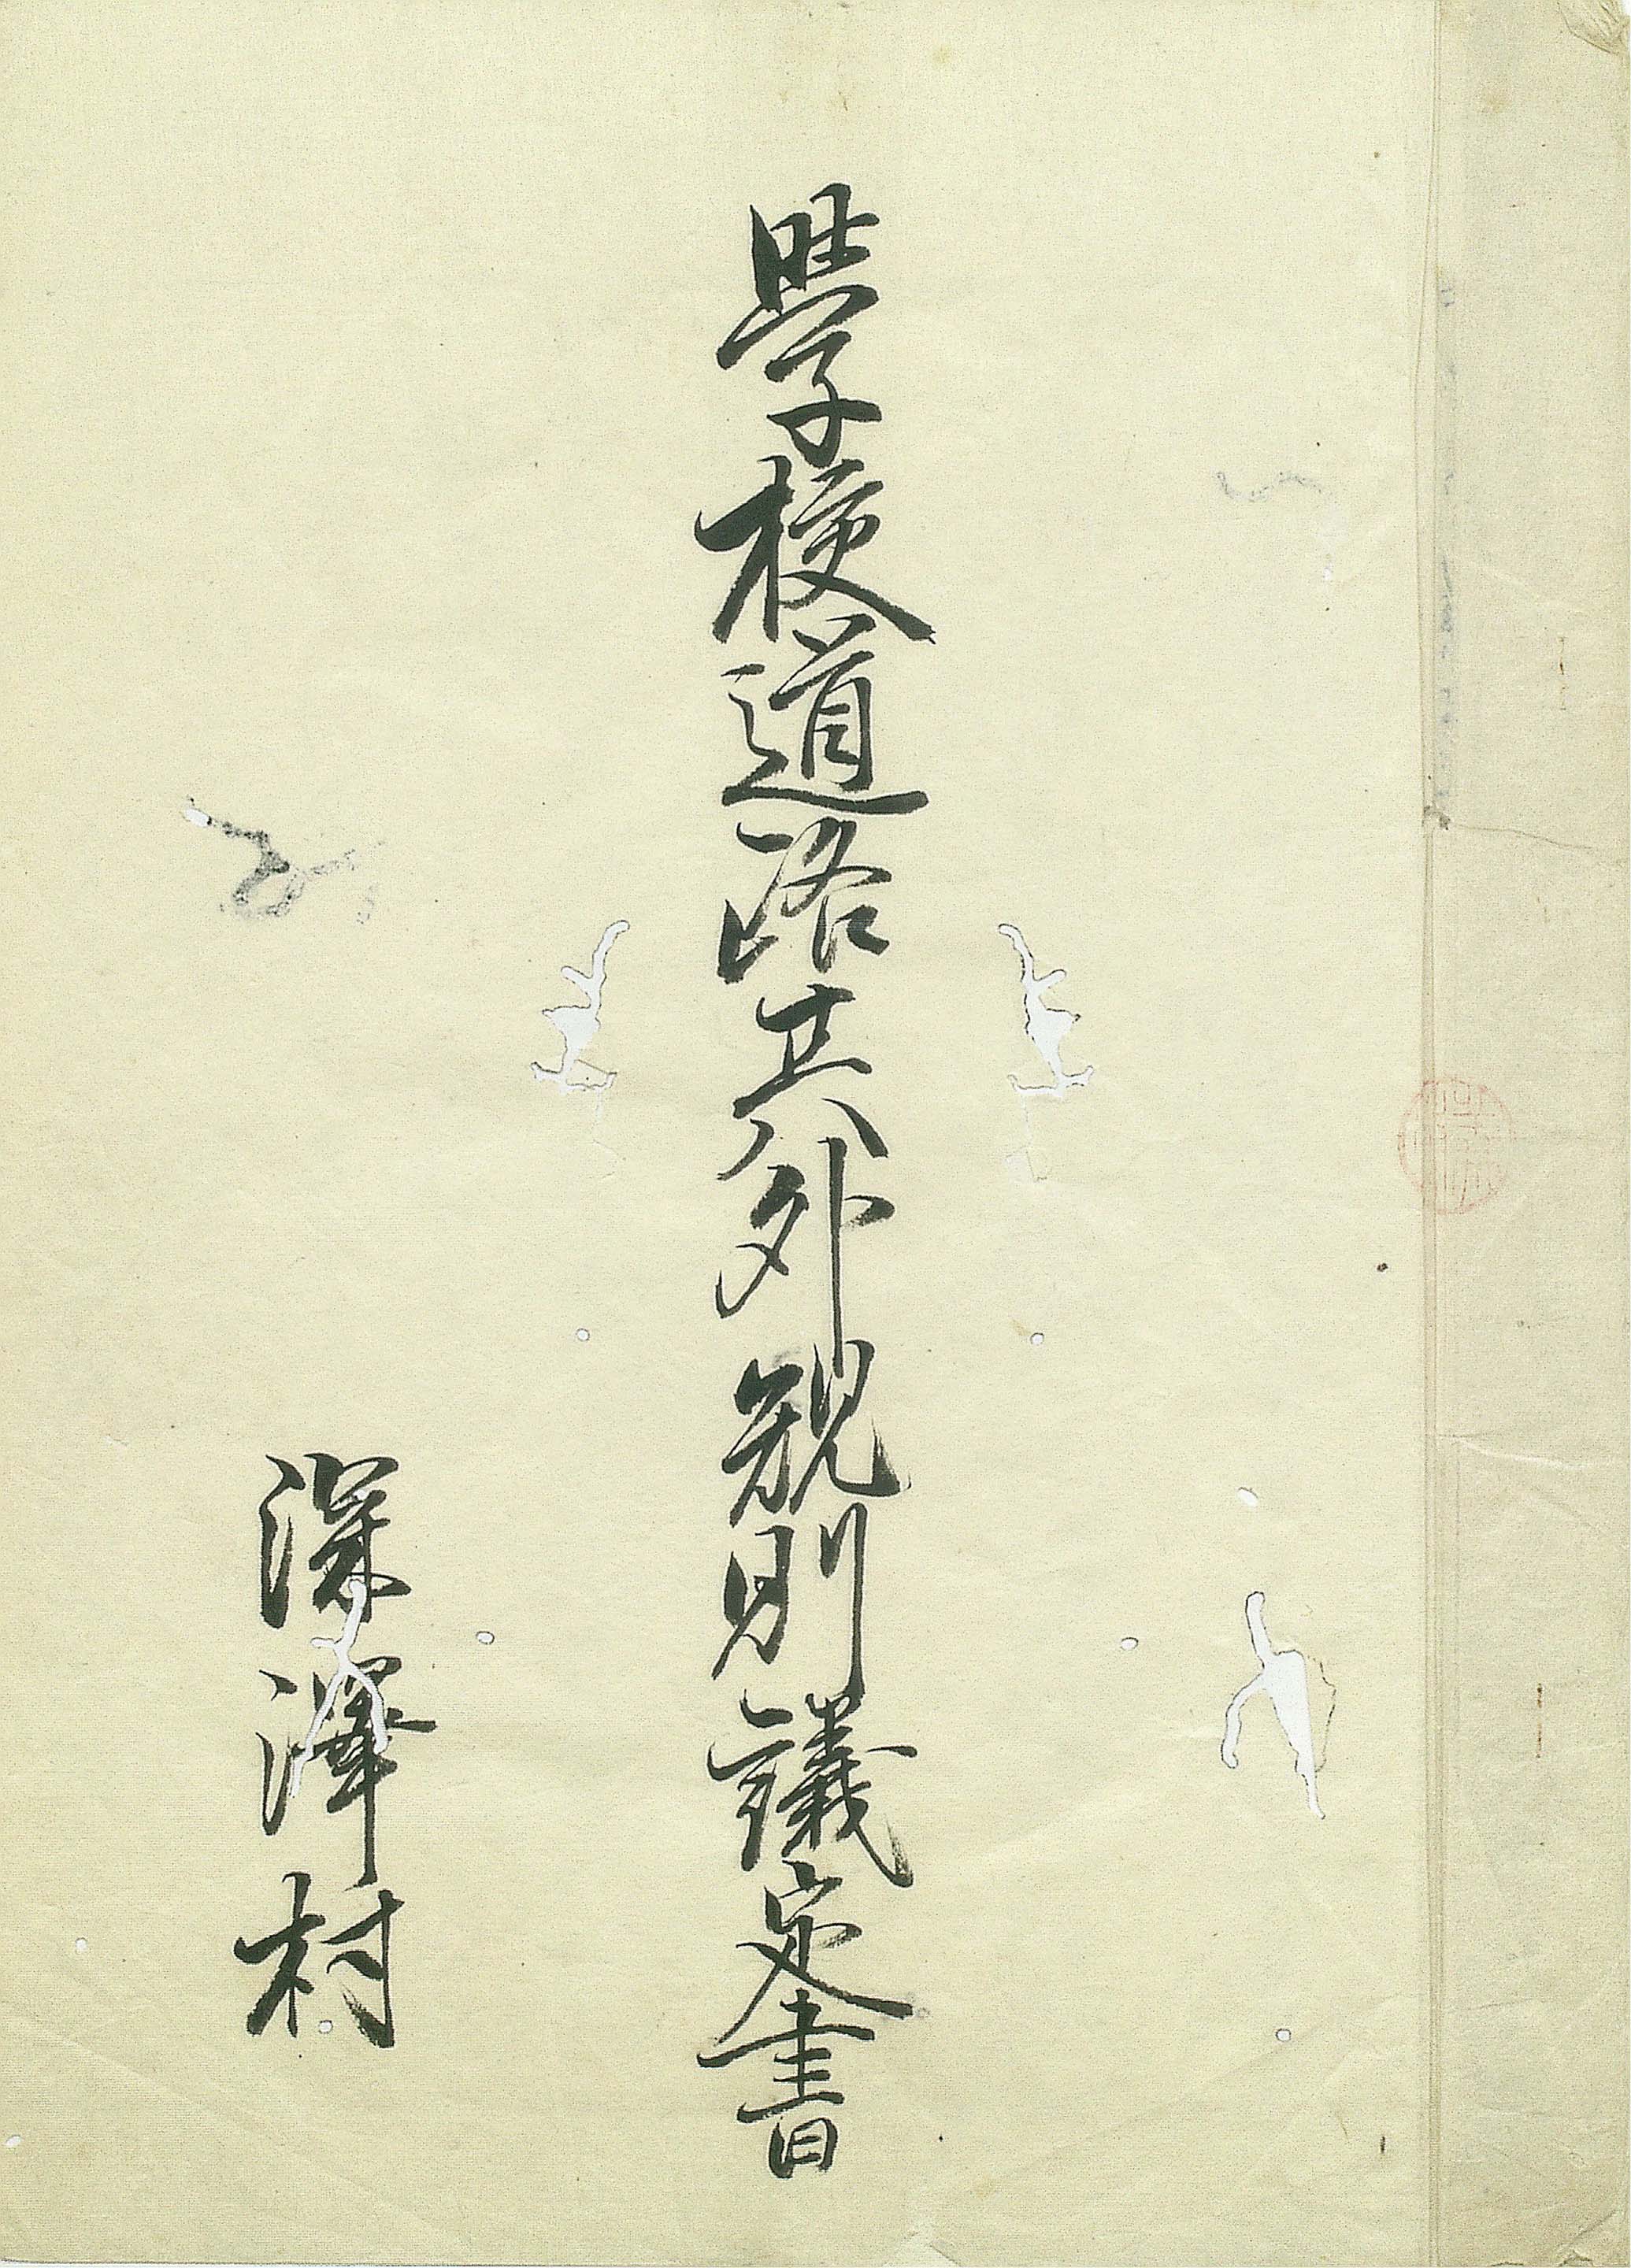 學校道路其外規則議定書
深澤村